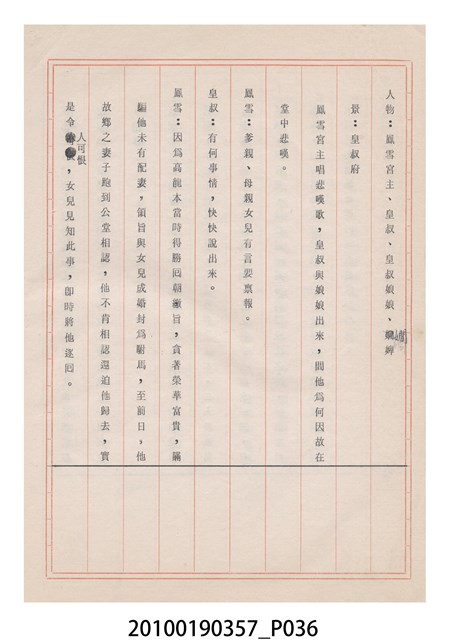 人物：鳳雪宮主、皇叔、皇叔娘娘、嫺婢
景：皇叔府
鳳雪宮主唱悲嘆歌，皇叔與娘娘出來，問他爲何因故在
堂中悲嘆。
鳳雪：爹親、母親女兒有言要禀報。
皇叔：有何事情，快快說出來。
鳳雪：因爲高龍本當時得勝囘朝繳旨，貪著榮華富貴，瞞
騙他未有配妻，領旨與女兒成婚封爲駙馬，至前日，他
故鄉之妻子跑到公堂相認，他不肯相認還迫他歸去，實
是令人可恨，女兒見知此事，卽時將他逐囘。
20100190357_P036